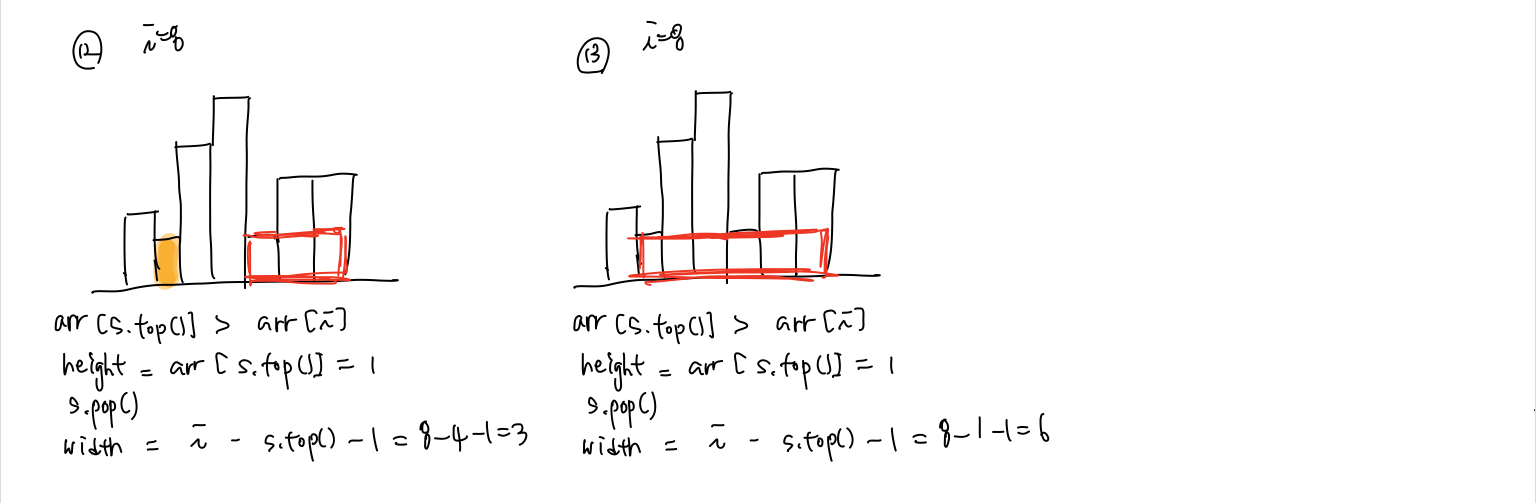 ⑫ i=8
arr[s.top()] > arr[i]
height = arr[s.top()] = 1
s.pop()
width = i - s.top() - 1 = 8-4-1=3
⑬ i=8
arr[s.top()] > arr[i]
height = arr[s.top()] = 1
s.pop()
width = i - s.top() - 1 = 8-1-1=6